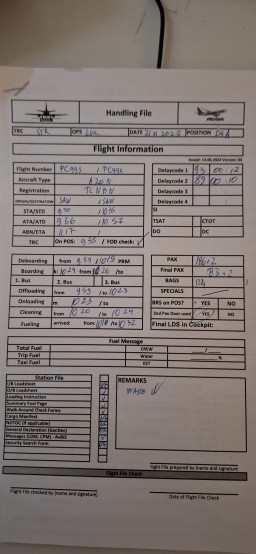 Handling File
TRC STR OPS DATE POSITION
Flight Information
Issued: 14.05.2024 Version: 02
Flight Number PC993 / PC994 Delaycode 1 93 00 12
Aircraft Type A20N Delaycode 2 89 00 10
Registration Delaycode 3
ORIGIN/DESTINATION SAW / SAW Delaycode 4
STA/STD SI
ATA/ATD 9 56 / 10 57 TSAT CTOT
ABN/CTA DO DC
TRC On POS: 9 55 / FOD check:
Deboarding from 9 59 / 10 19 PRM PAX 186+2
Boarding 10 29 from /to Final PAX 183+2
1. Bus 2. Bus 3. Bus BAGS 124
Offloading 9 59 / to 10 23 SPECIALS
Onloading 10 23 / to BRS on POS? YES NO
Cleaning from 10 20 / to 10 24 2nd Pax Door used YES NO
Fueling arrived: from: /to 10 32 Final LDS in Cockpit:
Fuel Message
Total Fuel CREW /
Trip Fuel Water %
Taxi Fuel EET
Station File
I/B Loadsheet REMARKS
O/B Loadsheet WASTE
Loading Instruction
Summary Fuel Page
Walk-Around Check Forms
Cargo Manifest
NOTOC (if applicable)
General Declaration (GenDec)
Messages (LDM, CPM)
Security Search Form
flight File prepared by (name and signature)
Flight File Check
Flight File checked by (name and signature) Date of Flight File Check